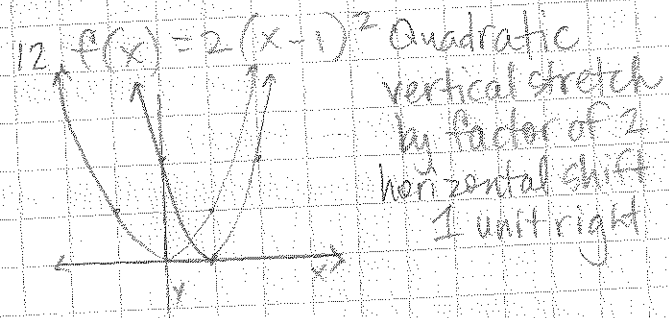 12 f(x) = 2(x-1)² Quadratic
vertical stretch
by factor of 2
horizontal shift
1 unit right
x
y